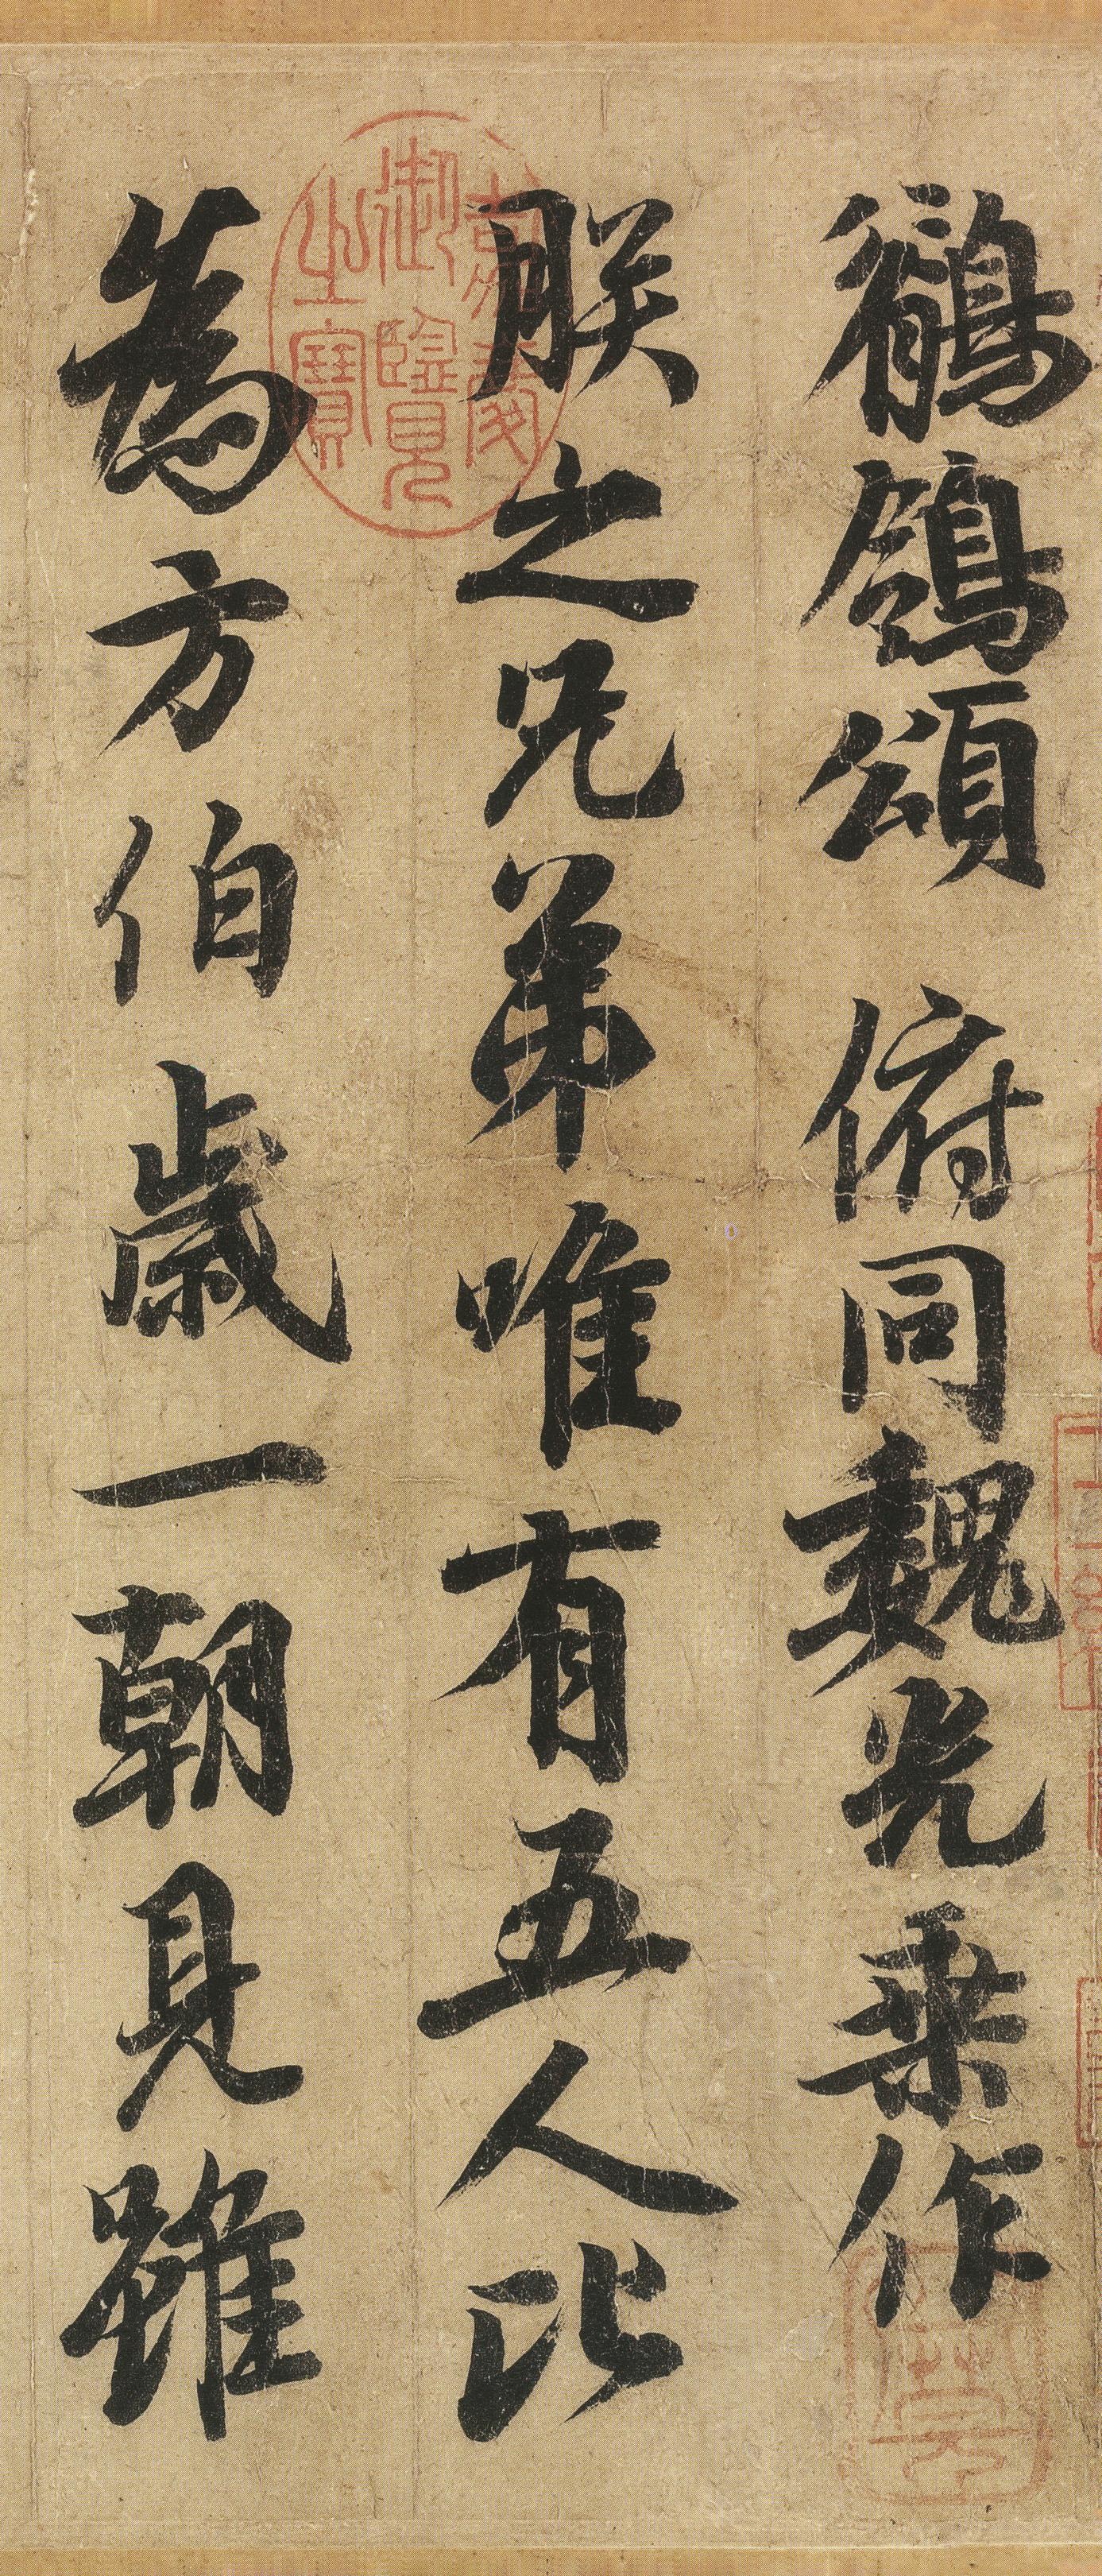 鶺鴒頌 俯同魏光乘作
朕之兄弟唯有五人比
為方伯歲一朝見雖
嘉慶御覽之寶